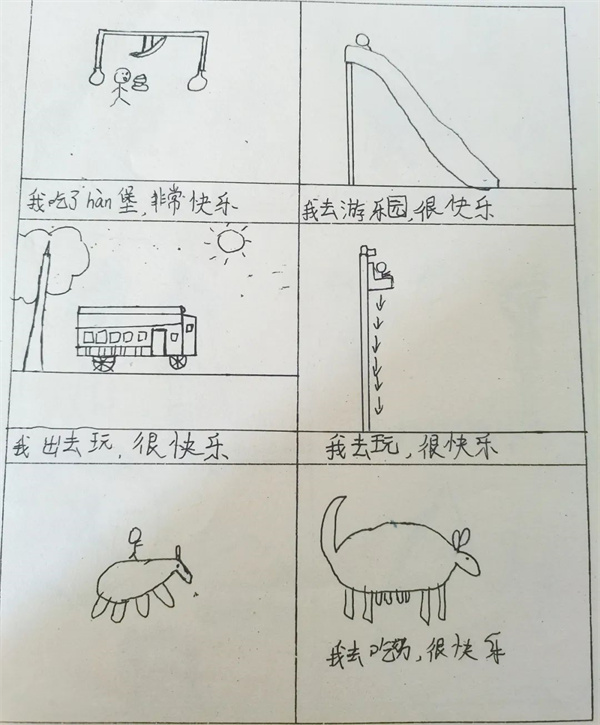 我吃了hàn堡,非常快乐
我去游乐园,很快乐
我出去玩,很快乐
我去玩,很快乐
我去吃奶,很快乐